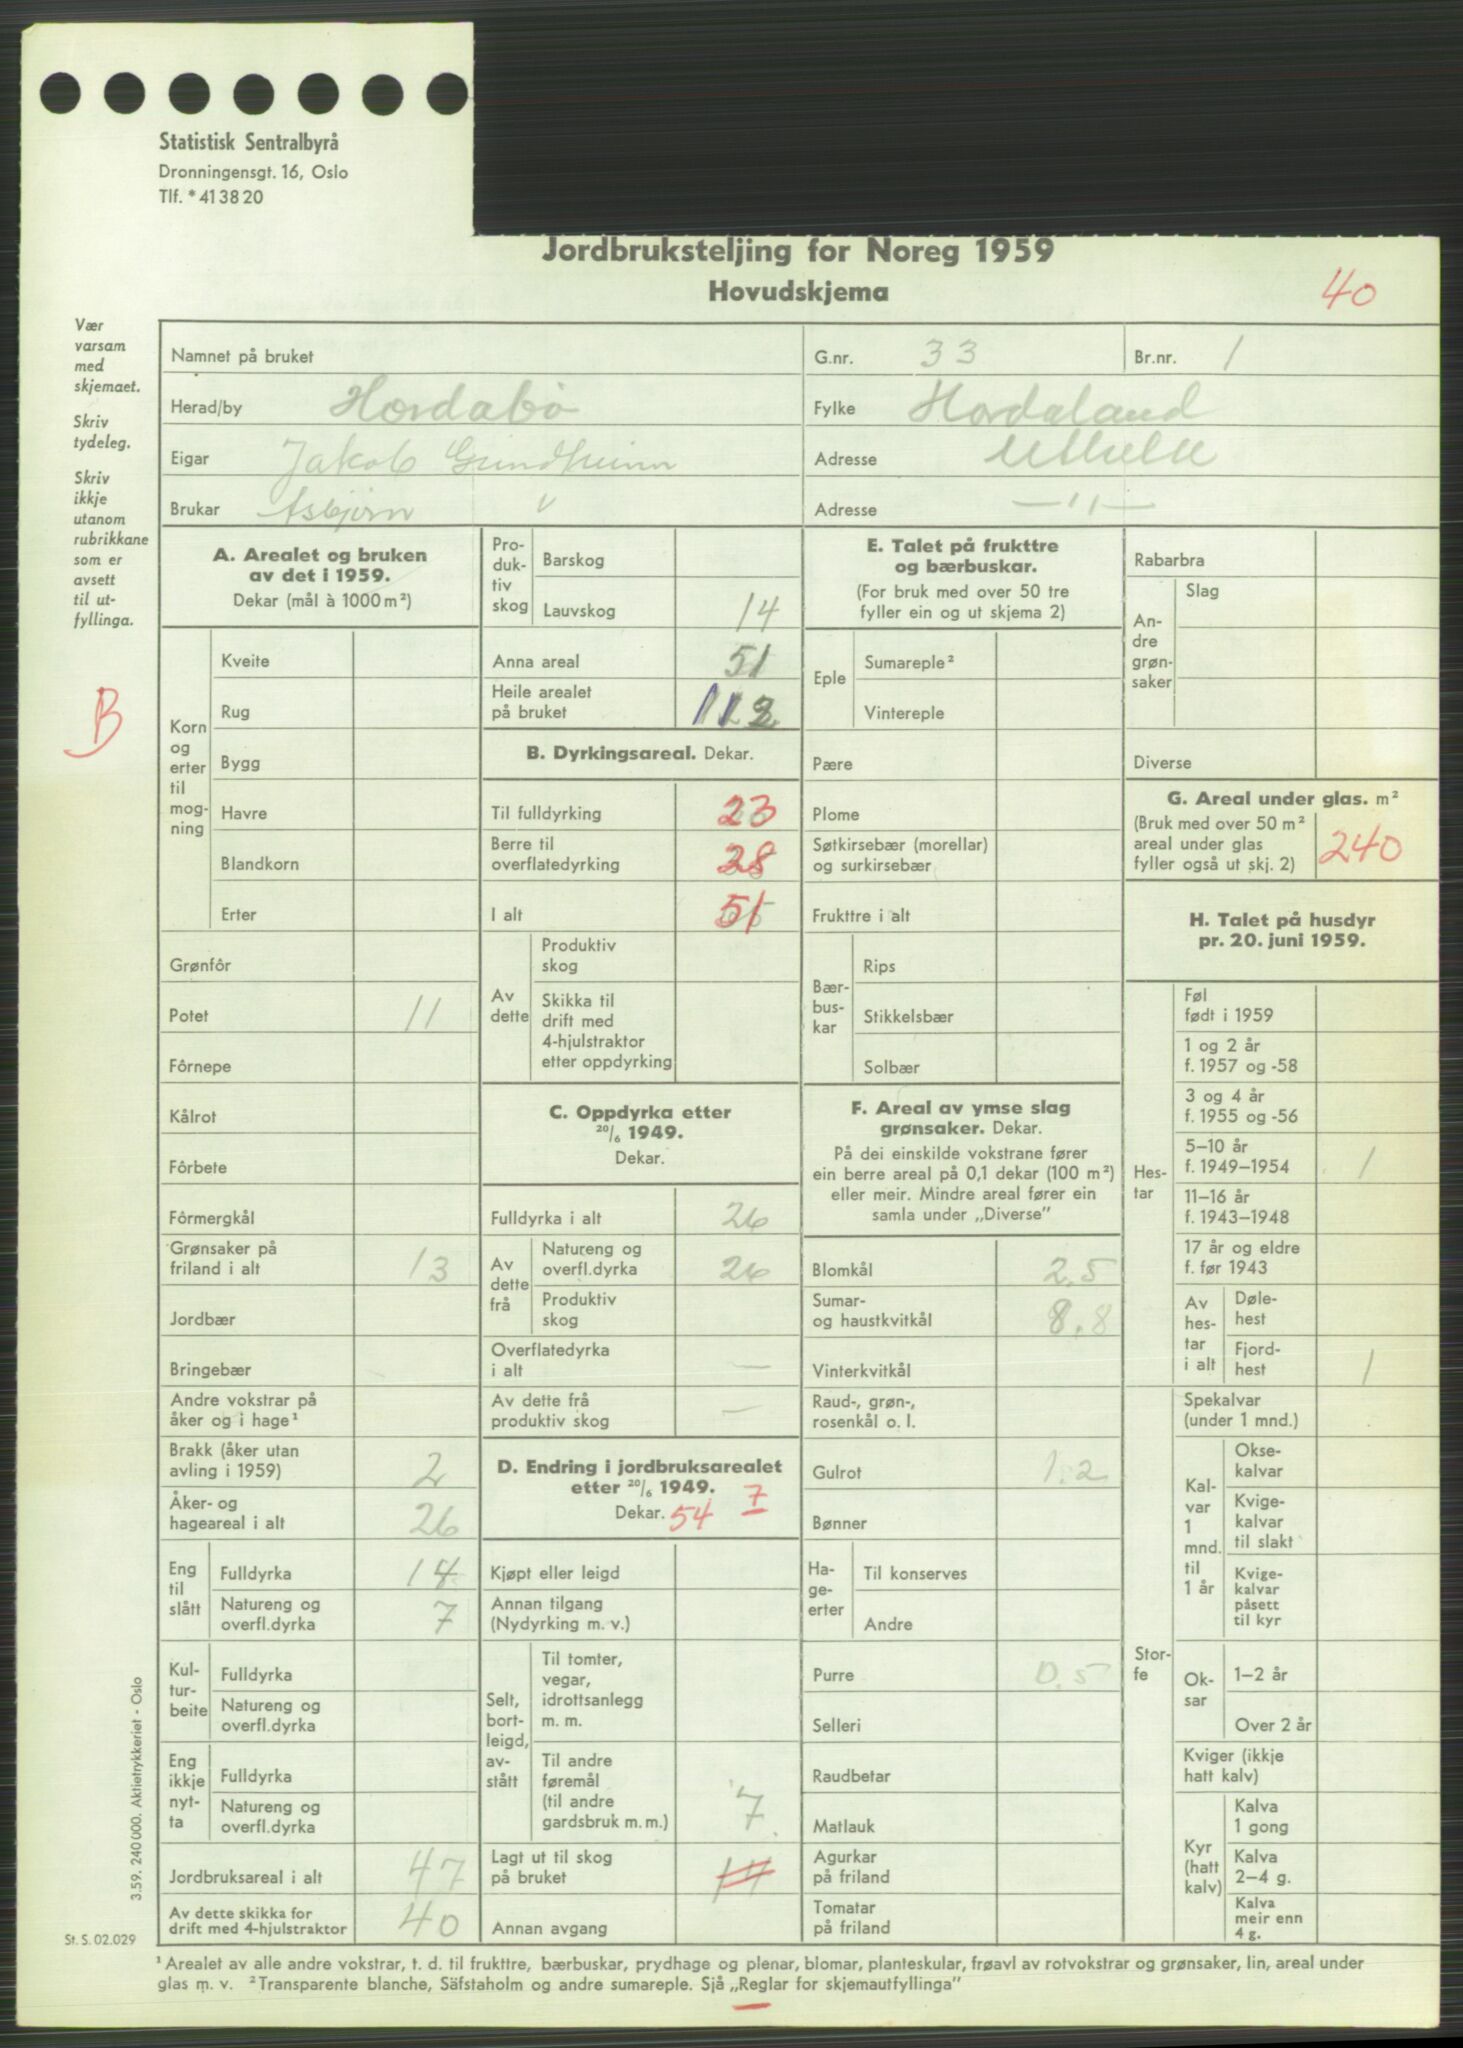 Statistisk Sentralbyrå
Dronningensgt. 16, Oslo
Tlf. * 41 38 20
Jordbruksteljing for Noreg 1959
Hovudskjema
40
Vær
varsam
med
skjemaet.
Skriv
tydeleg.
Skriv
ikkje
utanom
rubrikkane
som er
avsett
til ut-
fyllinga.
B
Namnet på bruket
G.nr. 33
Br.nr. 1
Herad/by Hordabø
Fylke Hordaland
Eigar Jakob Grindheim
Adresse
Brukar Asbjørn "
Adresse —"—
A. Arealet og bruken
av det i 1959.
Dekar (mål à 1000 m²)
Korn
og
erter
til
mog-
ning
Kveite
Rug
Bygg
Havre
Blandkorn
Erter
Grønfôr
Potet 11
Fôrnepe
Kålrot
Fôrbete
Fôrmergkål
Grønsaker på
friland i alt 13
Jordbær
Bringebær
Andre vokstrar på
åker og i hage¹
Brakk (åker utan
avling i 1959) 2
Åker- og
hageareal i alt 26
Eng
til
slått
Fulldyrka 14
Natureng og
overfl.dyrka 7
Kul-
tur-
beite
Fulldyrka
Natureng og
overfl.dyrka
Eng
ikkje
nyt-
ta
Fulldyrka
Natureng og
overfl.dyrka
Jordbruksareal i alt 47
Av dette skikka for
drift med 4-hjulstraktor 40
Pro-
duk-
tiv
skog
Barskog
Lauvskog 14
Anna areal 51
Heile arealet
på bruket 112
B. Dyrkingsareal. Dekar.
Til fulldyrking 23
Berre til
overflatedyrking 28
I alt 51
Av
dette
Produktiv
skog
Skikka til
drift med
4-hjulstraktor
etter oppdyrking
C. Oppdyrka etter
20/6 1949.
Dekar.
Fulldyrka i alt 26
Av
dette
frå
Natureng og
overfl.dyrka 26
Produktiv
skog
Overflatedyrka
i alt —
Av dette frå
produktiv skog —
D. Endring i jordbruksarealet
etter 20/6 1949.
Dekar. 54 7
Kjøpt eller leigd
Annan tilgang
(Nydyrking m. v.)
Selt,
bort-
leigd,
av-
stått
Til tomter,
vegar,
idrottsanlegg
m. m.
Til andre
føremål
(til andre
gardsbruk m. m.) 7
Lagt ut til skog
på bruket 14
Annan avgang
E. Talet på frukttre
og bærbuskar.
(For bruk med over 50 tre
fyller ein og ut skjema 2)
Eple
Sumareple²
Vintereple
Pære
Plome
Søtkirsebær (morellar)
og surkirsebær
Frukttre i alt
Bær-
bus-
kar
Rips
Stikkelsbær
Solbær
F. Areal av ymse slag
grønsaker. Dekar.
På dei einskilde vokstrane fører
ein berre areal på 0,1 dekar (100 m²)
eller meir. Mindre areal fører ein
samla under „Diverse”
Blomkål 2,5
Sumar-
og haustkvitkål 8,8
Vinterkvitkål
Raud-, grøn-,
rosenkål o. l.
Gulrot 1,2
Bønner
Ha-
ge-
erter
Til konserves
Andre
Purre 0,5
Selleri
Raudbetar
Matlauk
Agurkar
på friland
Tomatar
på friland
Rabarbra
An-
dre
grøn-
saker
Slag
Diverse
G. Areal under glas. m²
(Bruk med over 50 m²
areal under glas
fyller også ut skj. 2) 240
H. Talet på husdyr
pr. 20. juni 1959.
Hes-
tar
Føl
født i 1959
1 og 2 år
f. 1957 og -58
3 og 4 år
f. 1955 og -56
5–10 år
f. 1949–1954 1
11–16 år
f. 1943–1948
17 år og eldre
f. før 1943
Av
hes-
tar
i alt
Døle-
hest
Fjord-
hest 1
Stor-
fe
Spekalvar
(under 1 mnd.)
Kal-
var
1
mnd.
til
1 år
Okse-
kalvar
Kvige-
kalvar
til slakt
Kvige-
kalvar
påsett
til kyr
Ok-
sar
1–2 år
Over 2 år
Kviger (ikkje
hatt kalv)
Kyr
(hatt
kalv)
Kalva
1 gong
Kalva
2–4 g.
Kalva
meir enn
4 g.
3.59. 240 000. Aktietrykkeriet - Oslo
St. S. 02.029
¹ Arealet av alle andre vokstrar, t. d. til frukttre, bærbuskar, prydhage og plenar, blomar, planteskular, frøavl av rotvokstrar og grønsaker, lin, areal under
glas m. v. ² Transparente blanche, Säfstaholm og andre sumareple. Sjå „Reglar for skjemautfyllinga”